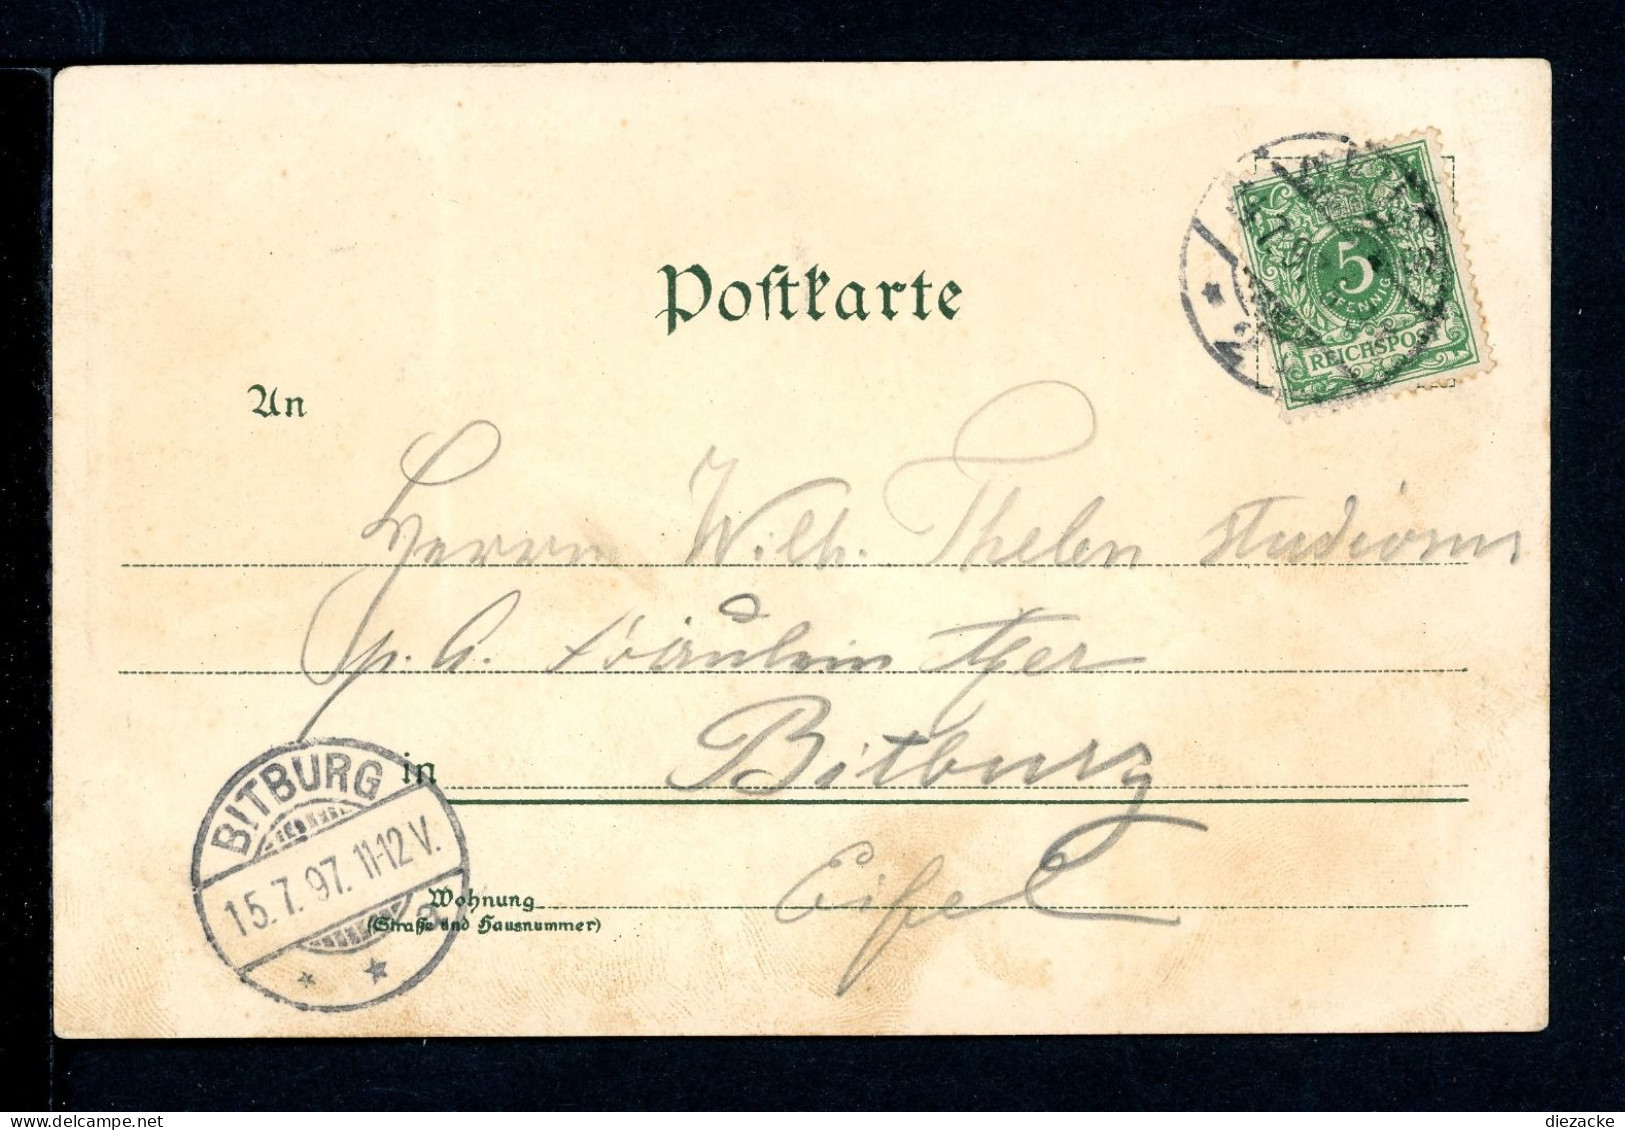 Postkarte
5
PFENNIG
REICHSPOST
An
Herrn Wilh. Thelen
p. A. Fräulein
in Bitburg
Eifel
BITBURG
15.7.97. 11-12 V.
Wohnung
(Straße und Hausnummer)
diezacke